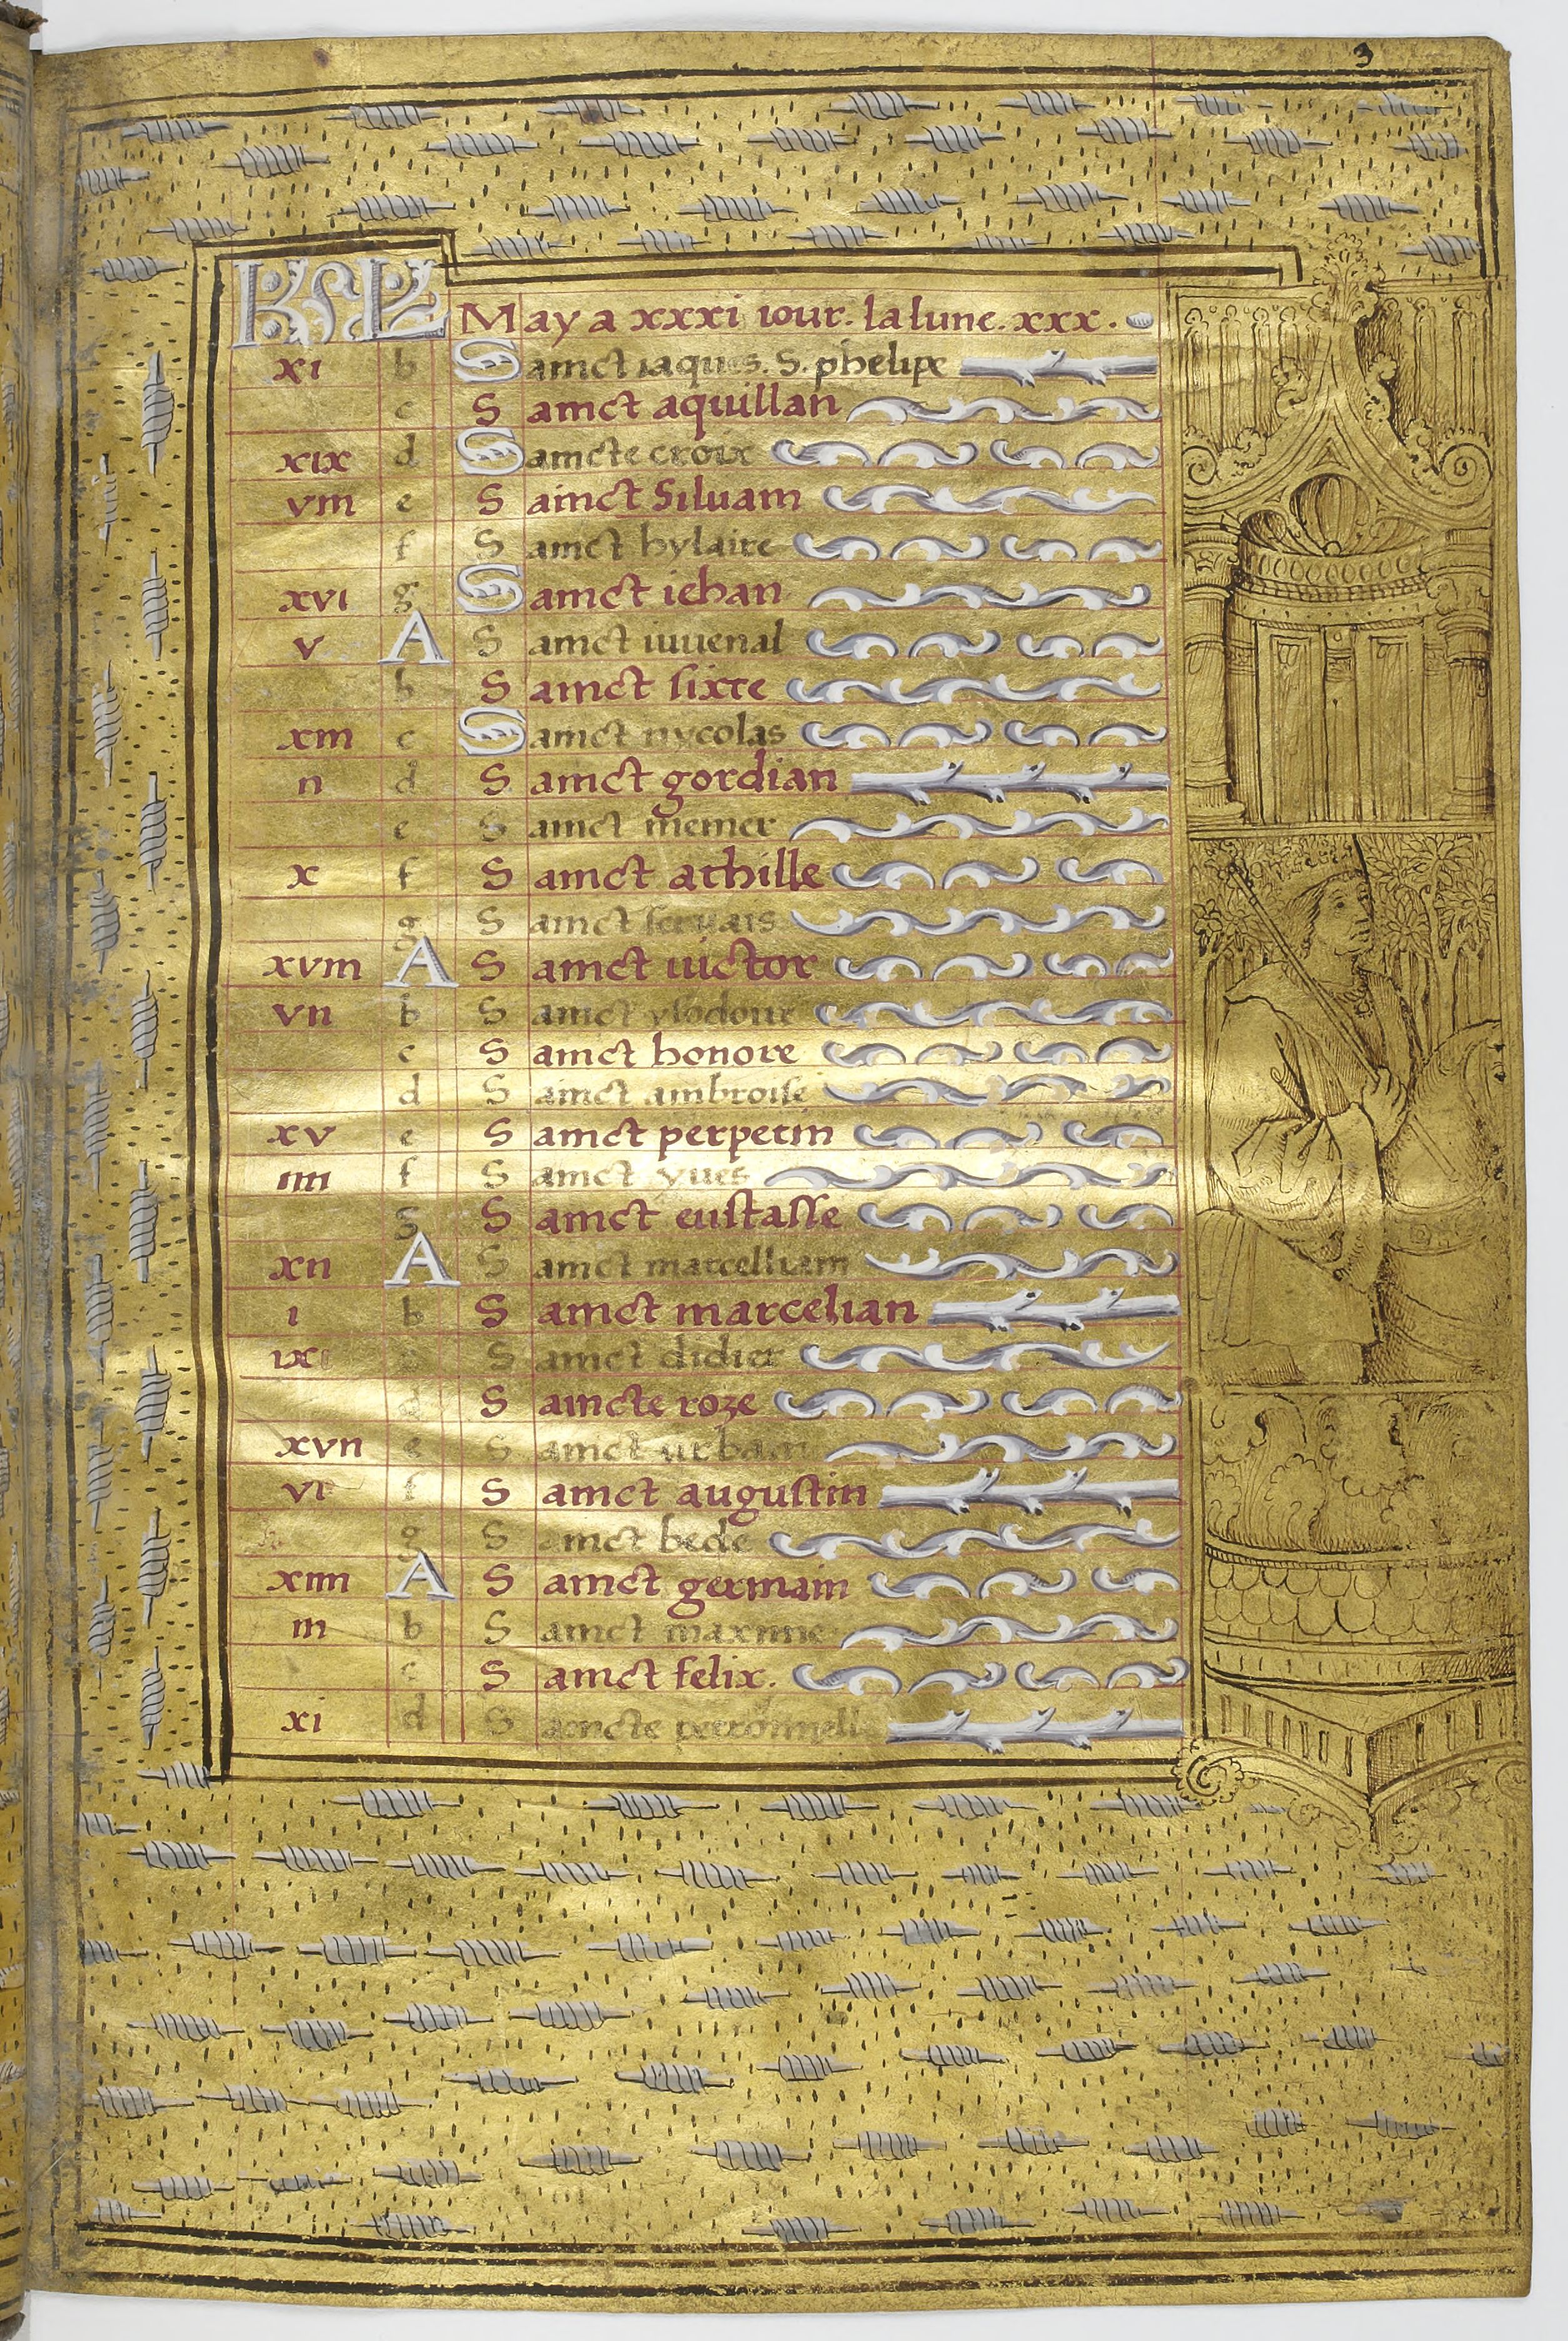 3
KL May a xxxi iour. la lune. xxx.
xi b Sainct iaques. S. phelipe
c Sainct aquillan
xix d Saincte croix
viii e Sainct Siluain
f Sainct hylaire
xvi g Sainct iehan
v A Sainct iuuenal
b Sainct sixte
xiii c Sainct nycolas
ii d Sainct gordian
e Sainct memer
x f Sainct athille
g Sainct seruais
xviii A Sainct uictor
vii b Sainct ysodore
c Sainct honore
d Sainct ambroise
xv e Sainct perpetin
iiii f Sainct yues
g Sainct eustasse
xii A Sainct marcelliam
i b Sainct marcelian
ix c Sainct didier
d Saincte roze
xvii e Sainct urbain
vi f Sainct augustin
g Sainct bede
xiiii A Sainct germain
iii b Sainct maxime
c Sainct felix.
xi d Saincte perronnelle